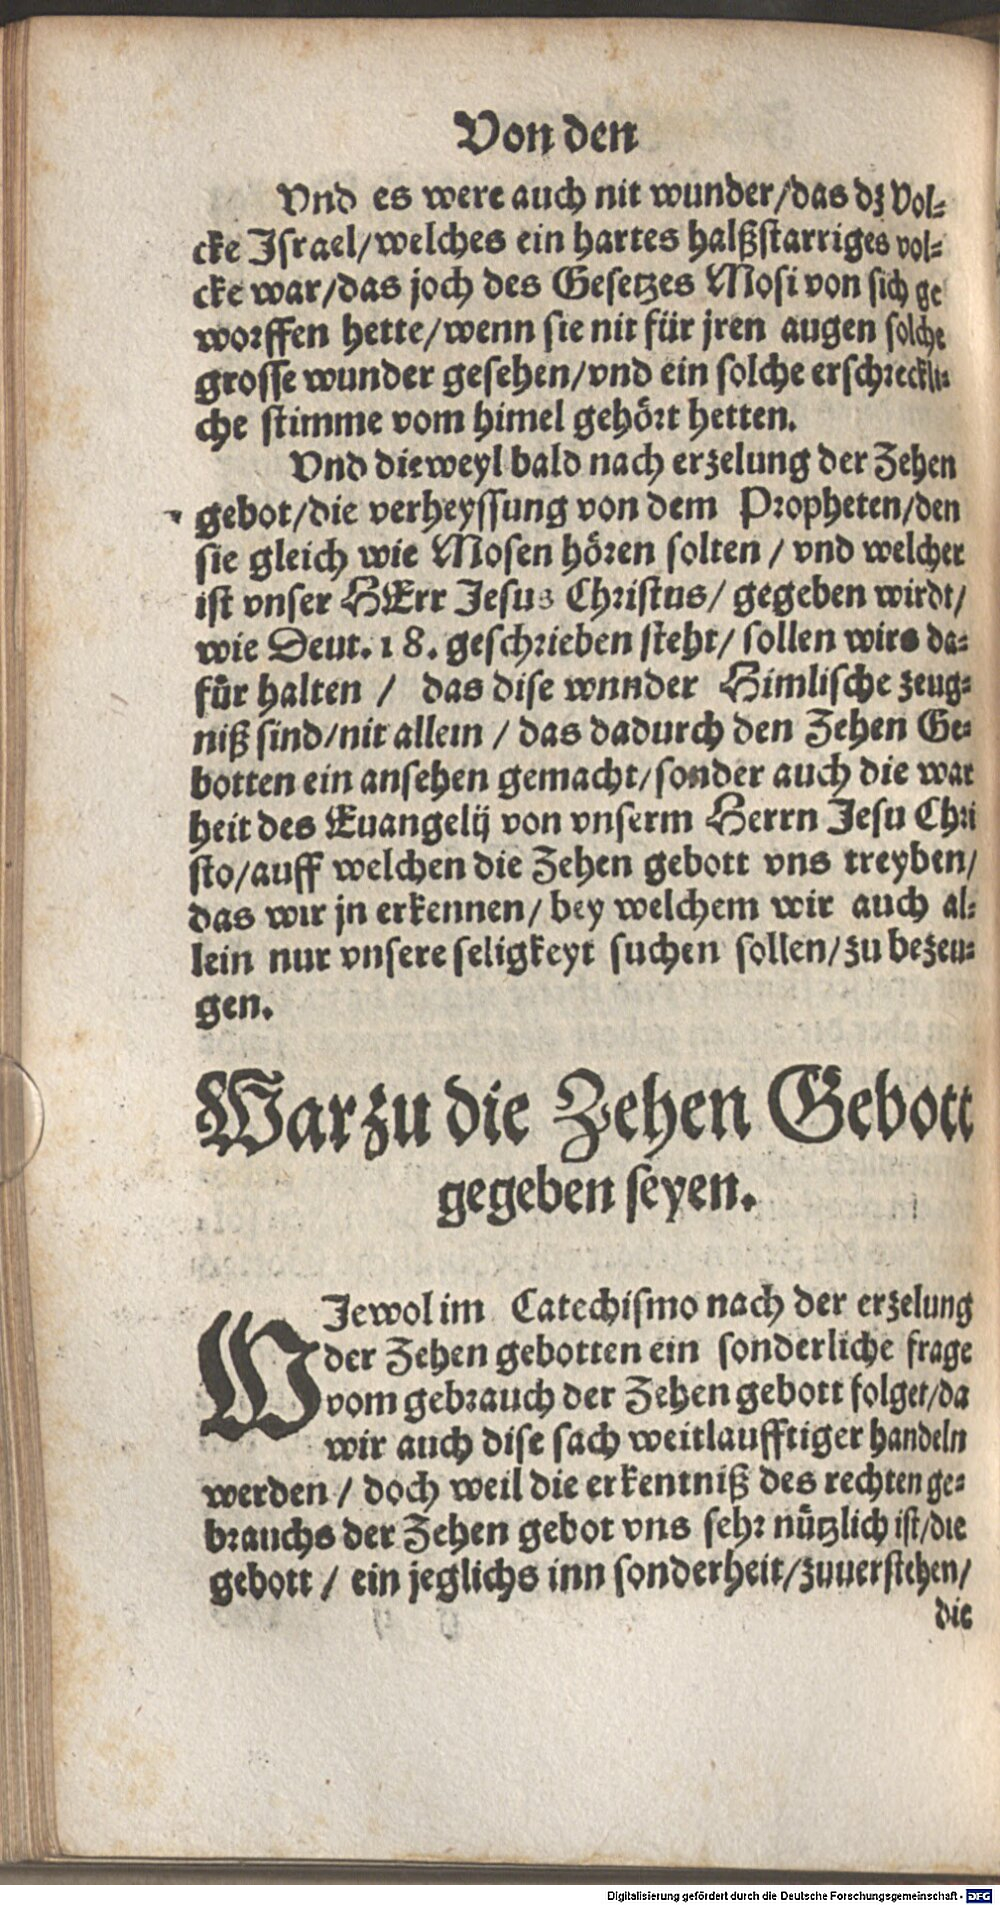 Von den
Vnd es were auch nit wunder/das dz Vol⸗
cke Israel/welches ein hartes halßstarriges vol⸗
cke war/das joch des Gesetzes Mosi von sich ge
worffen hette/wenn sie nit für jren augen solche
grosse wunder gesehen/vnd ein solche erschreckli⸗
che stimme vom himel gehört hetten.
Vnd dieweyl bald nach erzelung der Zehen
gebot/die verheyssung von dem Propheten/den
sie gleich wie Mosen hören solten / vnd welcher
ist vnser HErr Jesus Christus/ gegeben wirdt/
wie Deut. 18. geschrieben steht/ sollen wirs da⸗
für halten / das dise wnnder Himlische zeug⸗
niß sind/nit allein / das dadurch den Zehen Ge⸗
botten ein ansehen gemacht/sonder auch die war
heit des Euangelij von vnserm Herrn Jesu Chri
sto/auff welchen die Zehen gebott vns treyben/
das wir jn erkennen/ bey welchem wir auch al⸗
lein nur vnsere seligkeyt suchen sollen/zu bezeu⸗
gen.
Warzu die Zehen Gebott
gegeben seyen.
WJewol im Catechismo nach der erzelung
der Zehen gebotten ein sonderliche frage
vom gebrauch der Zehen gebott folget/da
wir auch dise sach weitlaufftiger handeln
werden / doch weil die erkentniß des rechten ge⸗
brauchs der Zehen gebot vns sehr nützlich ist/die
gebott / ein jeglichs inn sonderheit/zuuerstehen/
die
Digitalisierung gefördert durch die Deutsche Forschungsgemeinschaft - DFG